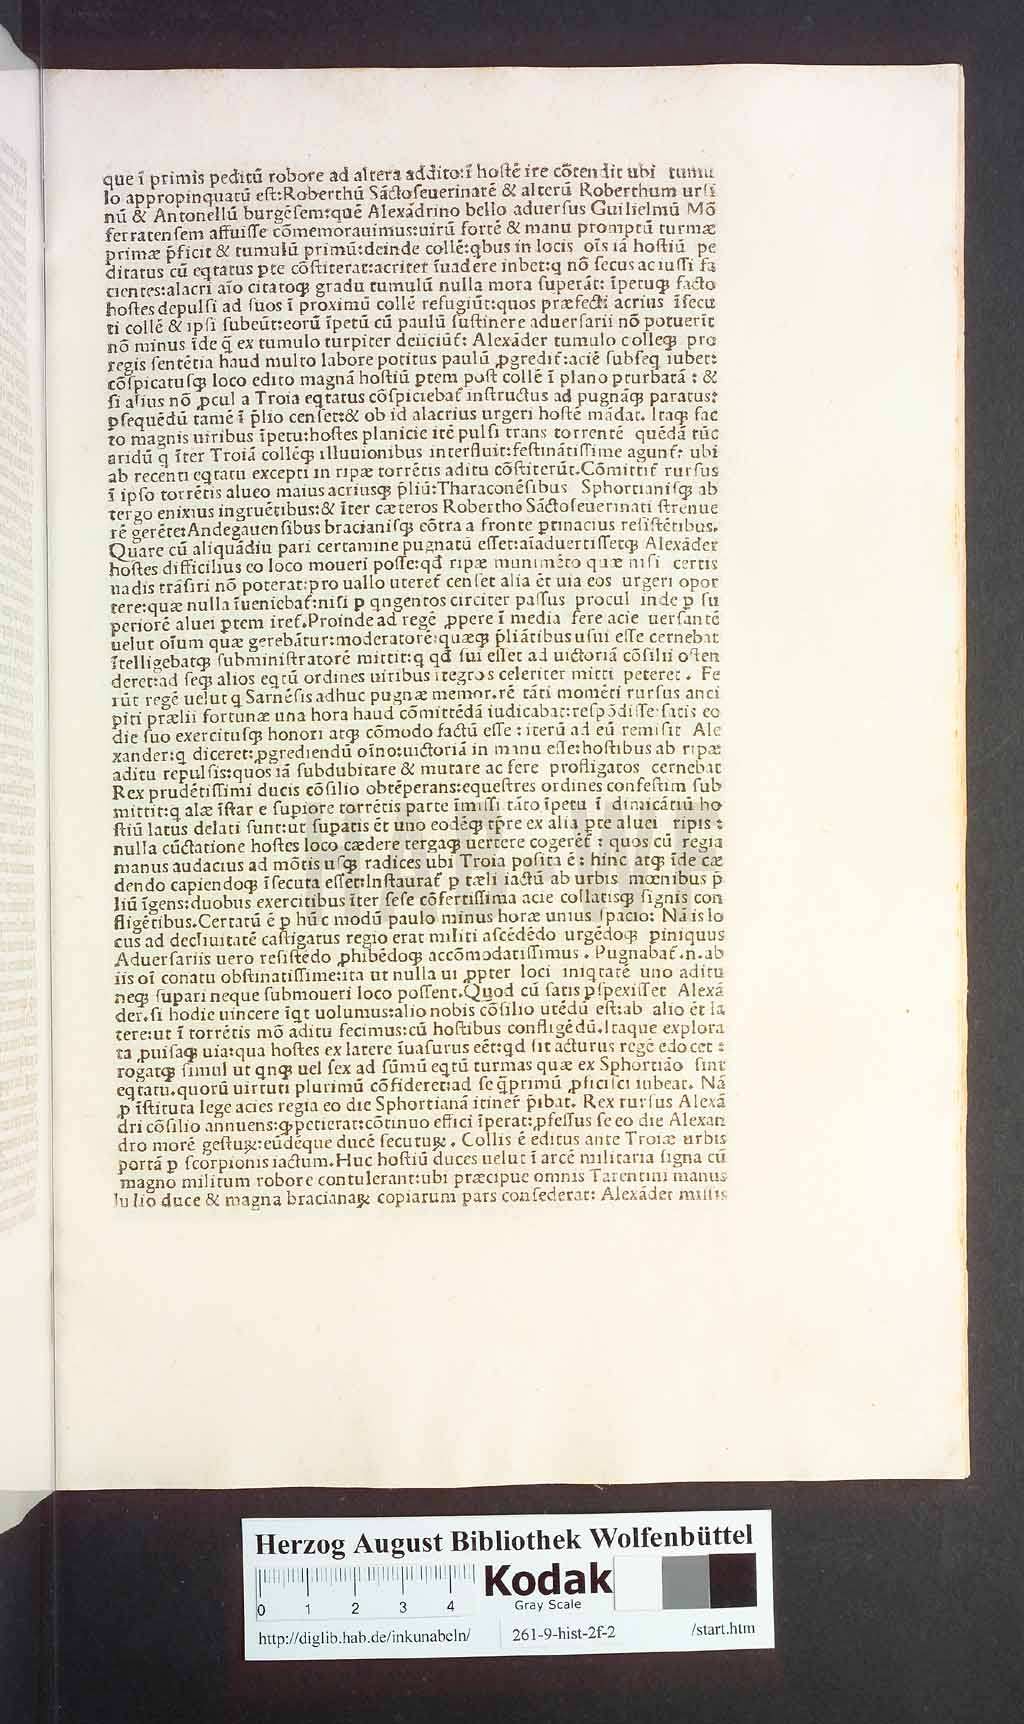 que ī primis peditū robore ad altera addito:ī hostē ire cōtendit ubi tumu
lo appropinquatū est:Roberthū Sāctoseuerinatē & alterū Roberthum ursi
nū & Antonellū burgēsem:quē Alexādrino bello aduersus Guilielmū Mō
ferratensem affuisse cōmemorauimus:uirū fortē & manu promptū turmæ
primæ p̄ficit & tumulū primū:deinde collē:qbus in locis oīs iā hostiū pe
ditatus cū eqtatus pte cōstiterat:acriter īuadere inbet:q nō secus ac iussi fa
cientes:alacri aīo citatoqȝ gradu tumulū nulla mora superāt: īpetuqȝ facto
hostes depulsi ad suos ī proximū collē refugiūt:quos præfecti acrius īsecu
ti collē & ipsi subeūt:eorū īpetū cū paulū sustinere aduersarii nō potuerīt
nō minus īde q̄ ex tumulo turpiter deiiciūt̄: Alexāder tumulo colleqȝ pro
regis sentētia haud multo labore potitus paulū ꝓgredit̄:aciē subseq iubet:
cōspicatusqȝ loco edito magnā hostiū ptem post collē ī plano pturbatā : &
si alius nō ꝓcul a Troia eqtatus cōspiciebat̄ instructus ad pugnāqȝ paratus:
ꝑsequēdū tamē ī p̄lio censet:& ob id alacrius urgeri hostē mādat. Itaqȝ fac
to magnis uiribus īpetu:hostes planicie itē pulsi trans torrentē quēdā tūc
aridū q īter Troiā collēqȝ illuuionibus interfluit:festinātissime agunt̄: ubi
ab recenti eqtatu excepti in ripæ torrētis aditu cōstiterūt.Cōmittit̄ rursus
ī ipso torrētis alueo maius acriusqȝ p̄liū:Tharaconēsibus Sphortianisqȝ ab
tergo enixius ingruētibus:& īter cæteros Robertho Sāctoseuerinati strenue
rē gerēte:Andegauensibus bracianisqȝ cōtra a fronte ꝑtinacius resistētibus.
Quare cū aliquādiu pari certamine pugnatū esset:aīaduertissetqȝ Alexāder
hostes difficilius eo loco moueri posse:qd̄ ripæ munimēto quæ nisi certis
uadis trāsiri nō poterat:pro uallo uteret̄ censet alia ēt uia eos urgeri opor
tere:quæ nulla īueniebat̄:nisi ꝑ qngentos circiter passus procul inde ꝑ su
periorē aluei ptem iret̄.Proinde ad regē ꝓpere ī media fere acie uersantē
uelut oīum quæ gerebātur:moderatorē:quæqȝ p̄liātibus usui esse cernebat
ītelligebatqȝ subministratorē mittit:q qd̄ sui esset ad uictoriā cōsilii osten
deret:ad seqȝ alios eqtū ordines uiribus itegros celeriter mitti peteret . Fe
rūt regē uelut q Sarnēsis adhuc pugnæ memor.rē tāti momēti rursus anci
piti prælii fortunæ una hora haud cōmittēdā iudicabat:respōdisse:satis eo
die suo exercitusqȝ honori atqȝ cōmodo factū esse : iterū ad eū remisit Ale
xander:q diceret:ꝓgrediendū oīno:uictoriā in manu esse:hostibus ab ripæ
aditu repulsis:quos iā subdubitare & mutare ac fere profligatos cernebat
Rex prudētissimi ducis cōsilio obtēperans:equestres ordines confestim sub
mittit:q alæ īstar e supiore torrētis parte īmissi tāto īpetu ī dimicātiū ho
stiū latus delati sunt:ut supatis ēt uno eodēqȝ tp̄re ex alia pte aluei ripis :
nulla cūctatione hostes loco cædere tergaqȝ uertere cogerēt̄ : quos cū regia
manus audacius ad mōtis usqȝ radices ubi Troia posita ē : hinc atqȝ īde cæ
dendo capiendoqȝ īsecuta esset:Instaurat̄ ꝑ tæli iactū ab urbis mœnibus p̄
liū īgens:duobus exercitibus īter sese cōfertissima acie collatisqȝ signis con
fligētibus.Certatū ē ꝑ hūc modū paulo minus horæ unius spacio: Nā is lo
cus ad decliuitatē castigatus regio erat militi ascēdēdo urgēdoqȝ ꝑiniquus
Aduersariis uero resistēdo ꝓhibēdoqȝ accōmodatissimus . Pugnabat̄ .n. ab
iis oī conatu obstinatissime:ita ut nulla ui ꝓpter loci iniqtatē uno aditu
neqȝ supari neque submoueri loco possent.Quod cū satis ꝑspexisset Alexā
der.si hodie uincere īqt uolumus:alio nobis cōsilio utēdū est:ab alio ēt la
tere:ut ī torrētis mō aditu fecimus:cū hostibus confligēdū.Itaque explora
ta ꝓuisaqȝ uia:qua hostes ex latere īuasurus eēt:qd sit acturus regē edocet :
rogatqȝ simul ut qnqȝ uel sex ad sūmū eqtū turmas quæ ex Sphortiāo sint
eqtatu.quorū uirtuti plurimū cōfideret:ad se q̄primū ꝓficisci iubeat. Nā
ꝑ īstituta lege acies regia eo die Sphortianā itiner̄ p̄ibat. Rex rursus Alexā
dri cōsilio annuens:qꝓpetierat:cōtinuo effici īperat:ꝓfessus se eo die Alexan
dro morē gestuꝝ:eūdēque ducē secutuꝝ . Collis ē editus ante Troiæ urbis
portā ꝑ scorpionis iactum.Huc hostiū duces uelut ī arcē militaria signa cū
magno militum robore contulerant:ubi præcipue omnis Tarentini manus
Iulio duce & magna bracianaꝝ copiarum pars consederat: Alexāder missis
Herzog August Bibliothek Wolfenbüttel
0 1 2 3 4
Kodak
Gray Scale
http://diglib.hab.de/inkunabeln/ 261-9-hist-2f-2 /start.htm